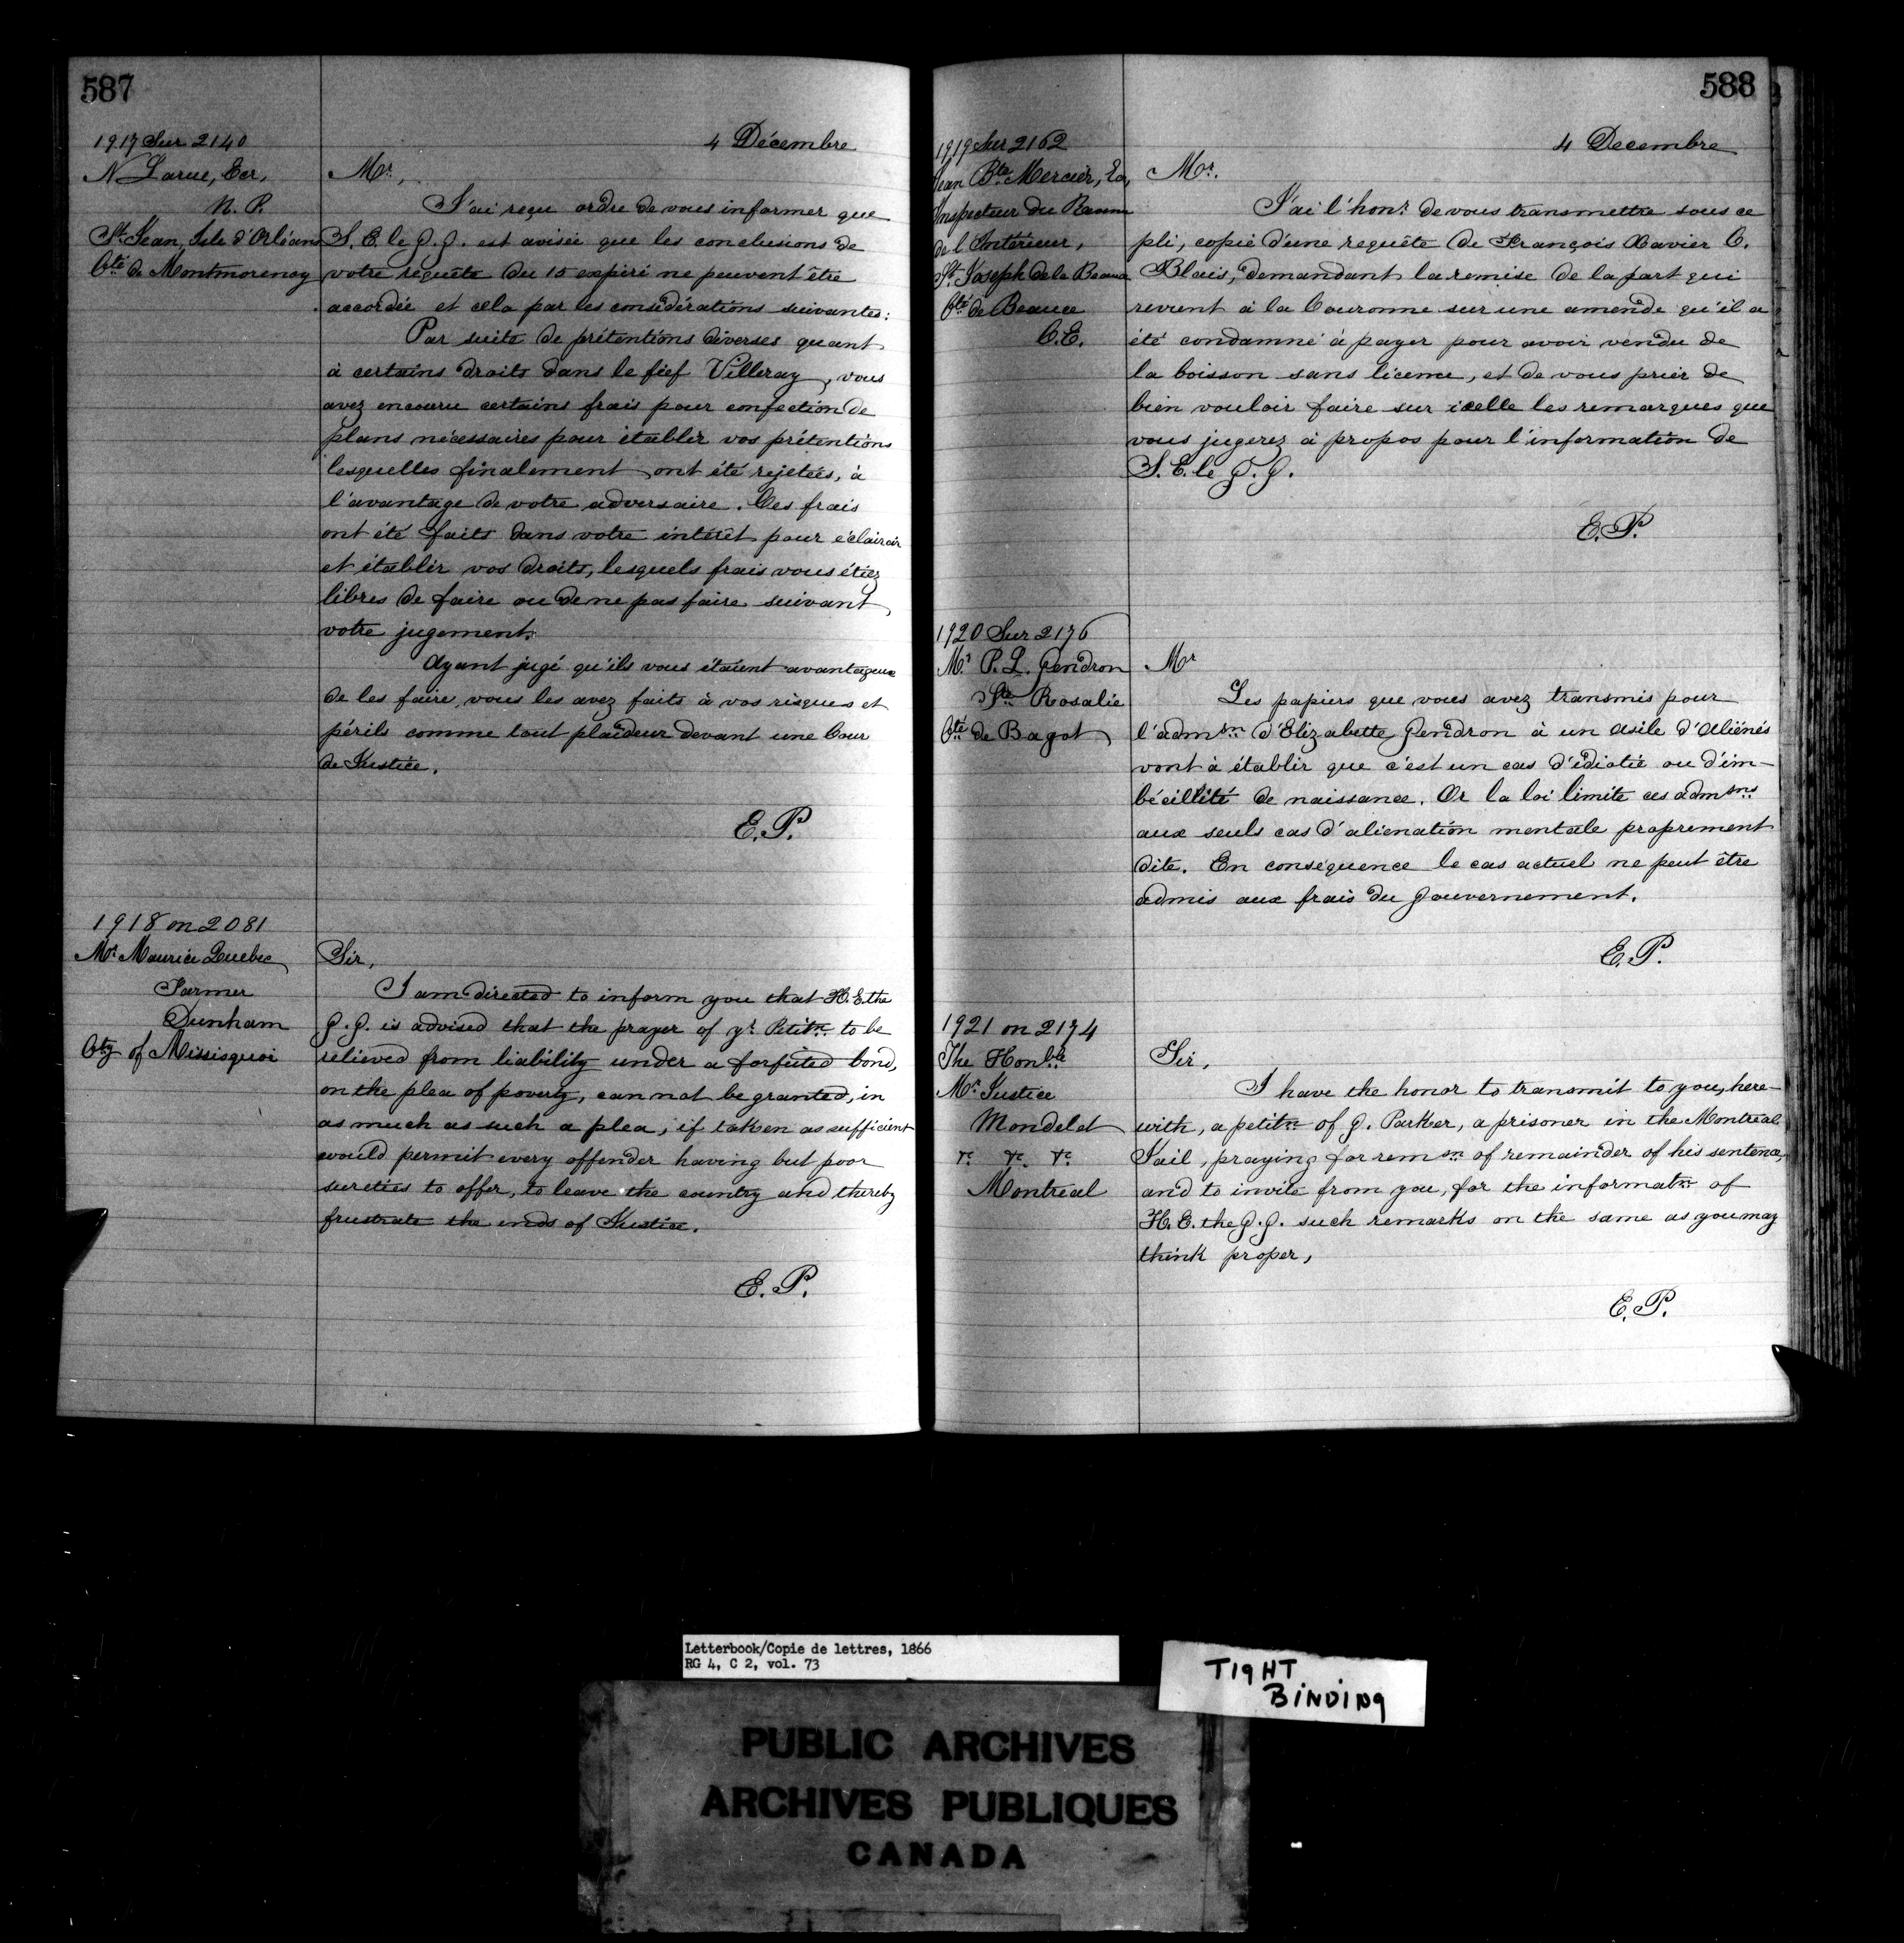 587
4 Décembre
1917 Sur 2140
N Larue, Ecr,
N. P.
St Jean, Isle d'Orléans
Cté de Montmorency
Mr,
J'ai reçu ordre de vous informer que
S. E. le G. G. est avisée que les conclusions de
votre requête du 15 expiré ne peuvent être
accordée et cela par les considérations suivantes:
Par suite de prétentions diverses quant
à certains droits dans le fief Villeray, vous
avez encouru certains frais pour confection de
plans nécessaires pour établir vos prétentions
lesquelles finalement ont été rejetées, à
l'avantage de votre adversaire. Ces frais
ont été faits dans votre intérêt pour éclaircir
et établir vos droits, lesquels frais vous étiez
libres de faire ou de ne pas faire suivant
votre jugement.
Ayant jugé qu'ils vous étaient avantageux
de les faire, vous les avez faits à vos risques et
périls comme tout plaideur devant une Cour
de Justice.
E. P.
1918 on 2081
Mr Maurice Quebec
Farmer
Dunham
Cty of Missisquoi
Sir,
I am directed to inform you that H. E. the
G. G. is advised that the prayer of yr Petitn to be
relieved from liability under a forfeited bond,
on the plea of poverty, can not be granted, in
as much as such a plea, if taken as sufficient
would permit every offender having but poor
sureties to offer, to leave the country and thereby
frustrate the ends of Justice.
E. P.
588
4 Decembre
1919 Sur 2162
Jean Bte Mercier, Ecr,
Inspecteur du Revenu
de l'Intérieur,
St Joseph de la Beauce
Cté de Beauce
C. E.
Mr.
J'ai l'honr de vous transmettre sous ce
pli, copie d'une requête de François Xavier C.
Blais, demandant la remise de la part qui
revient à la Couronne sur une amende qu'il a
été condamné à payer pour avoir vendu de
la boisson sans licence, et de vous prier de
bien vouloir faire sur icelle les remarques que
vous jugerez à propos pour l'information de
S. E. le G. G.
E. P.
1920 Sur 2176
Mr P. L. Gendron
Ste Rosalie
Cté de Bagot
Mr
Les papiers que vous avez transmis pour
l'admsn d'Elizabette Gendron à un Asile d'Aliénés
vont à établir que c'est un cas d'idiotie ou d'im-
bécillité de naissance. Or la loi limite ces admsns
aux seuls cas d'aliénation mentale proprement
dite. En conséquence le cas actuel ne peut être
admis aux frais du Gouvernement.
E. P.
1921 on 2174
The Honble
Mr Justice
Mondelet
&c. &c. &c.
Montreal
Sir,
I have the honor to transmit to you, here-
with, a petitn of G. Parker, a prisoner in the Montreal
Jail, praying for remsn of remainder of his sentence,
and to invite from you, for the informatn of
H. E. the G. G. such remarks on the same as you may
think proper,
E. P.
Letterbook/Copie de lettres, 1866
RG 4, C 2, vol. 73
TIGHT
BINDING
PUBLIC ARCHIVES
ARCHIVES PUBLIQUES
CANADA